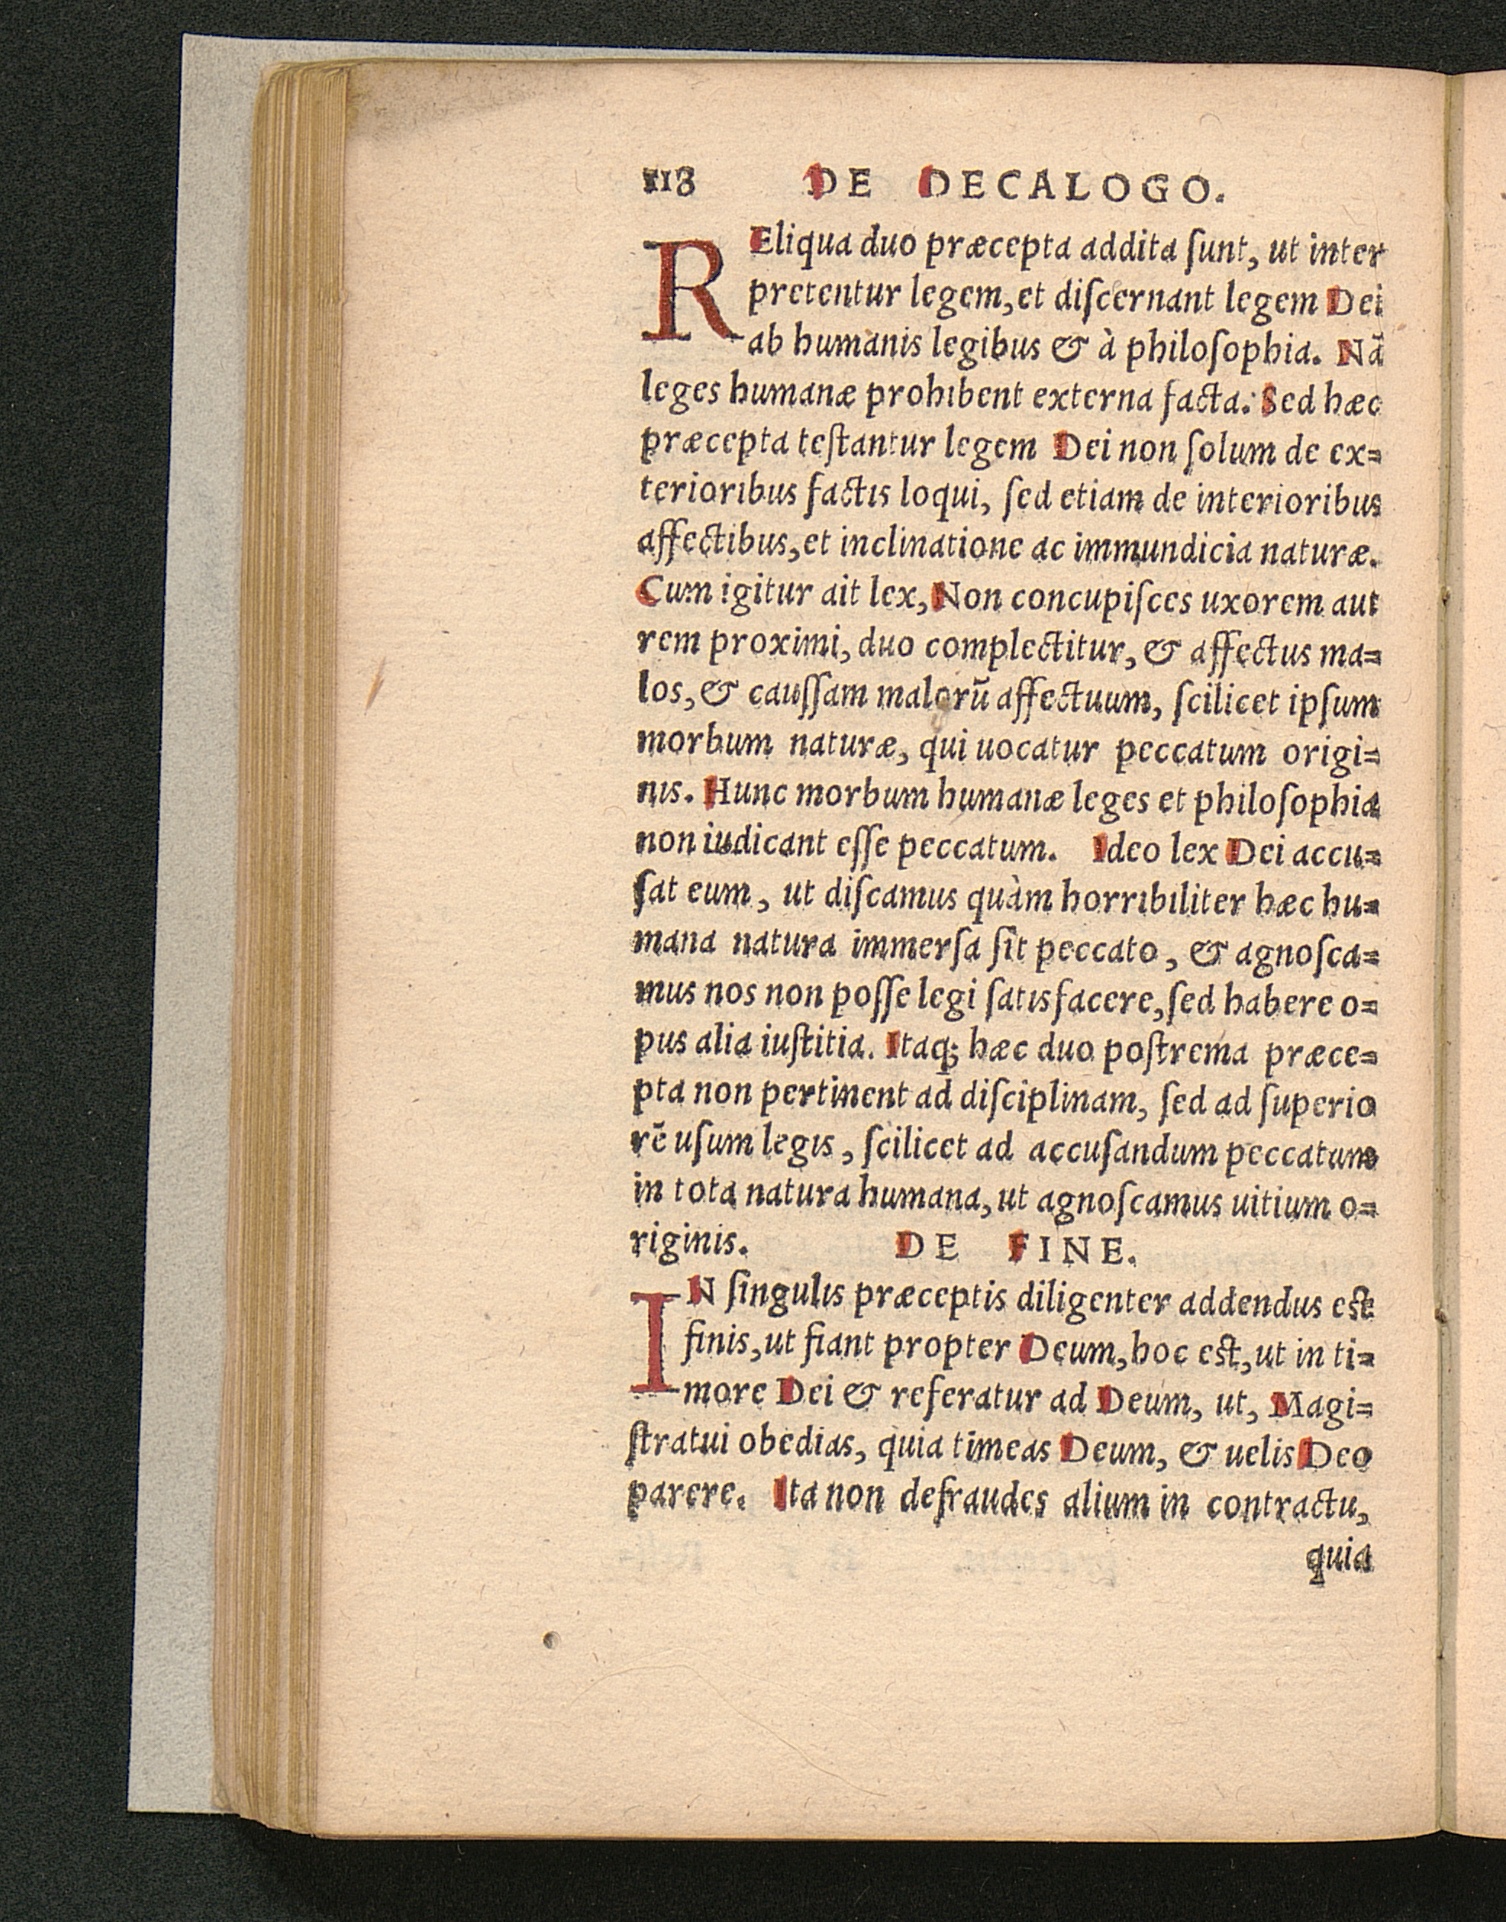 118 DE DECALOGO.
REliqua duo præcepta addita ſunt, ut inter
pretentur legem, et diſcernant legem Dei
ab humanis legibus & à philoſophia. Nã
leges humanæ prohibent externa facta. Sed hæc
præcepta teſtantur legem Dei non ſolum de ex=
terioribus factis loqui, ſed etiam de interioribus
affectibus, et inclinatione ac immundicia naturæ.
Cum igitur ait lex, Non concupiſces uxorem aut
rem proximi, duo complectitur, & affectus ma=
los, & cauſſam malorũ affectuum, ſcilicet ipſum
morbum naturæ, qui uocatur peccatum origi=
nis. Hunc morbum humanæ leges et philoſophia
non iudicant eſſe peccatum. Ideo lex Dei accu=
ſat eum, ut diſcamus quàm horribiliter hæc hu=
mana natura immerſa ſit peccato, & agnoſca=
mus nos non poſſe legi ſatisfacere, ſed habere o=
pus alia iuſtitia. Itaq; hæc duo poſtrema præce=
pta non pertinent ad diſciplinam, ſed ad ſuperio
rẽ uſum legis, ſcilicet ad accuſandum peccatum
in tota natura humana, ut agnoſcamus uitium o=
riginis. DE FINE.
IN ſingulis præceptis diligenter addendus eſt
finis, ut fiant propter Deum, hoc eſt, ut in ti=
more Dei & referatur ad Deum, ut, Magi=
ſtratui obedias, quia timeas Deum, & uelis Deo
parere. Ita non defraudes alium in contractu,
quia